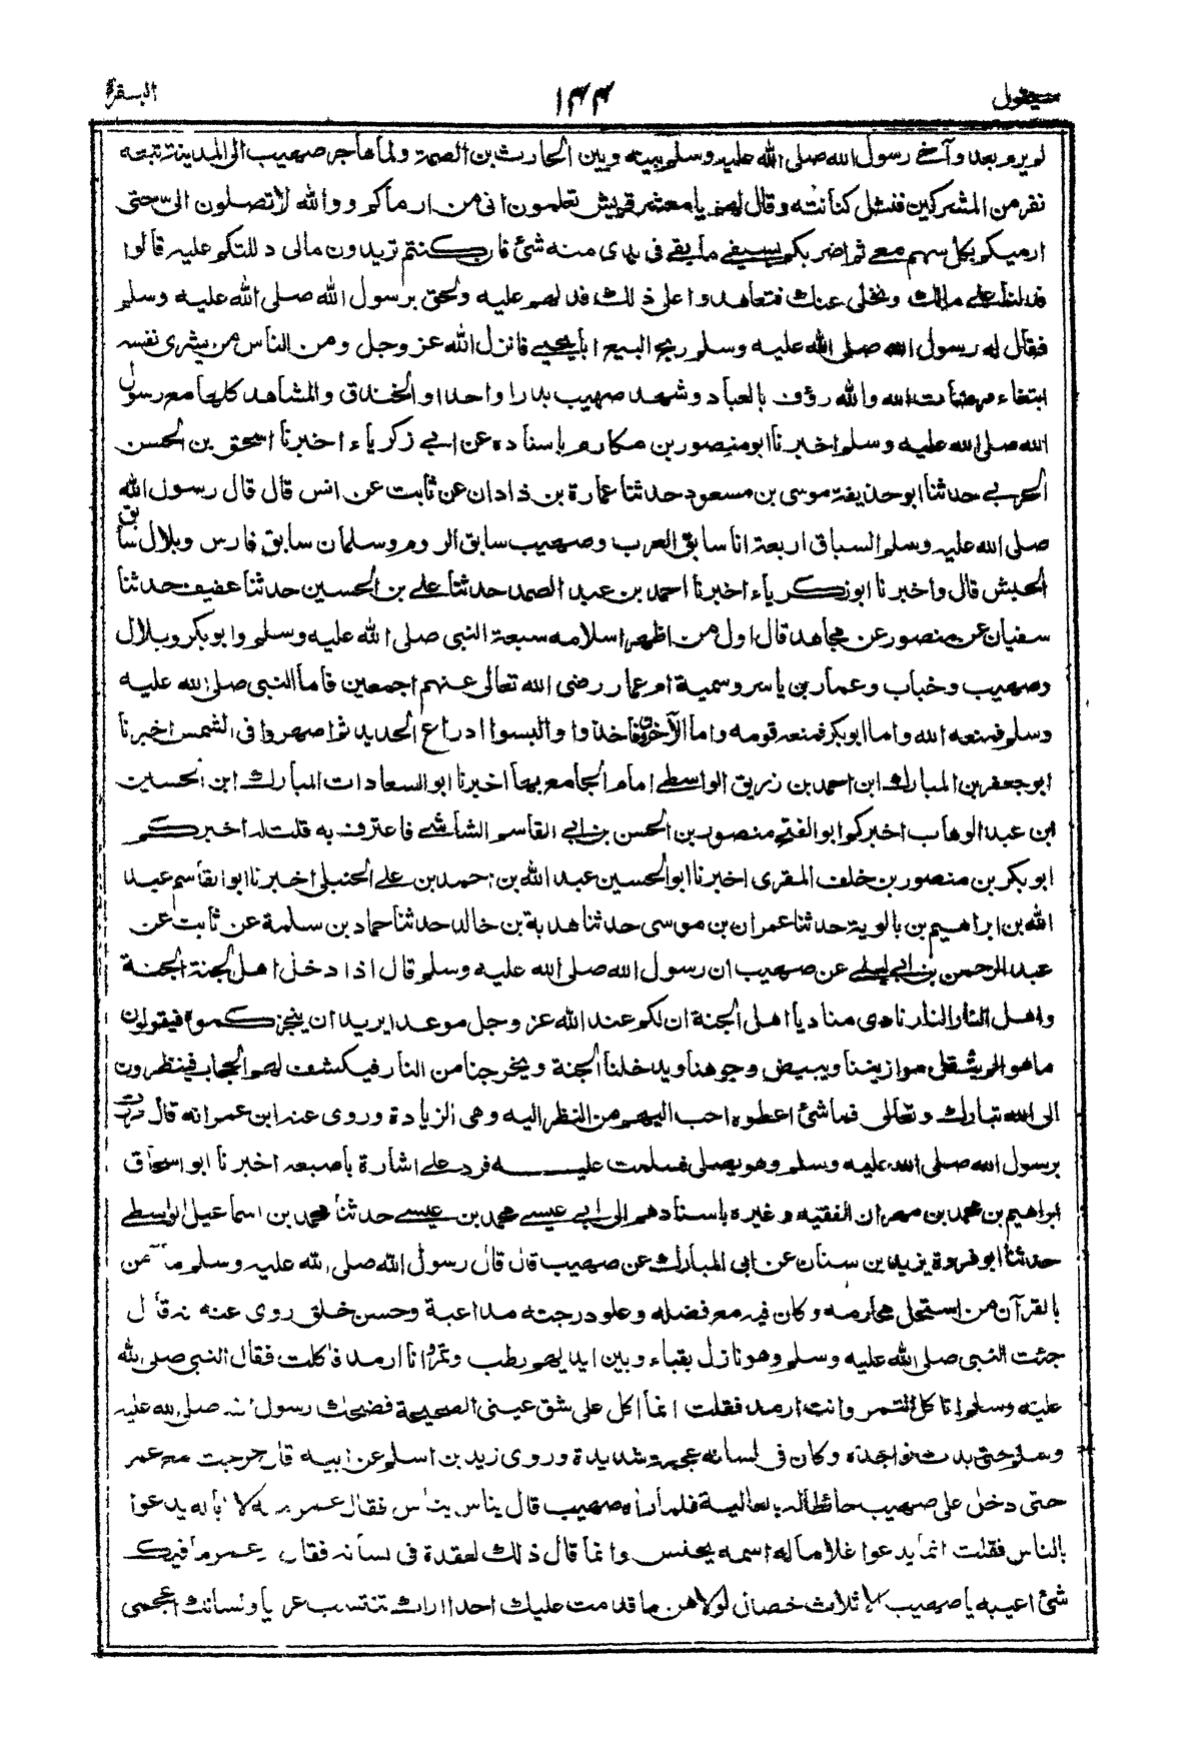 سيقول ١٣٣ البقرة
لم يره بعد وآخى رسول الله صلى الله عليه وسلم بينه وبين الحارث بن الصمة ولما هاجر صهيب الى المدينة تبعه
نفر من المشركين فنثل كنانته وقال لهم يا معشر قريش تعلمون انى من ارماكم ووالله لا تصلون الى حتى
ارميكم بكل سهم معى ثم اضربكم بسيفى ما بقى فى يدى منه شئ فان كنتم تريدون مالى دللتكم عليه قالوا
فدلنا على مالك ونخلى عنك فتعاهدوا على ذلك فدلهم عليه ولحق برسول الله صلى الله عليه وسلم
فقال له رسول الله صلى الله عليه وسلم ربح البيع ابا يحيى فانزل الله عز وجل ومن الناس من يشرى نفسه
ابتغاء مرضات الله والله رؤف بالعباد وشهد صهيب بدرا واحدا والخندق والمشاهد كلها مع رسول
الله صلى الله عليه وسلم اخبرنا ابو منصور بن مكارم باسناده عن ابى زكرياء اخبرنا اسحق بن الحسن
الحربى حدثنا ابو حذيفة موسى بن مسعود حدثنا عمارة بن ذادان عن ثابت عن انس قال قال رسول الله
صلى الله عليه وسلم السباق اربعة انا سابق العرب وصهيب سابق الروم وسلمان سابق فارس وبلال سابق
الحبش قال واخبرنا ابو زكرياء اخبرنا احمد بن عبد الصمد حدثنا على بن الحسين حدثنا عفيف حدثنا
سفيان عن منصور عن مجاهد قال اول من اظهر اسلامه سبعة النبى صلى الله عليه وسلم وابو بكر وبلال
وصهيب وخباب وعمار بن ياسر وسمية ام عمار رضى الله تعالى عنهم اجمعين فاما النبى صلى الله عليه
وسلم فمنعه الله واما ابو بكر فمنعه قومه واما الآخرون فاخذوا والبسوا ادراع الحديد ثم اصهروا فى الشمس اخبرنا
ابو جعفر بن المبارك ابن احمد بن زريق الواسطى امام الجامع بها اخبرنا ابو السعادات المبارك ابن الحسين
ابن عبد الوهاب اخبركم ابو الفتح منصور بن الحسن بن ابى القاسم الشاشى فاعترف به قلت له اخبركم
ابو بكر بن منصور بن خلف المقرى اخبرنا ابو الحسين عبد الله بن احمد بن على الحنبلى اخبرنا ابو القاسم عبيد
الله بن ابراهيم بن بالوية حدثنا عمران بن موسى حدثنا هدبة بن خالد حدثنا حماد بن سلمة عن ثابت عن
عبد الرحمن بن ابى ليلى عن صهيب ان رسول الله صلى الله عليه وسلم قال اذا دخل اهل الجنة الجنة
واهل النار النار نادى مناد يا اهل الجنة ان لكم عند الله عز وجل موعد ايريد ان ينجزكموه فيقولون
ما هو الم يثقل موازيننا ويبيض وجوهنا ويدخلنا الجنة ويخرجنا من النار فيكشف لهم الحجاب فينظرون
الى الله تبارك وتعالى فما شئ اعطوه احب اليهم من النظر اليه وهى الزيادة وروى عنه ابن عمر انه قال مررت
برسول الله صلى الله عليه وسلم وهو يصلى فسلمت عليه فرد على اشارة باصبعه اخبرنا ابو اسحاق
ابراهيم بن محمد بن مهران الفقيه وغيره باسنادهم الى ابى عيسى محمد بن عيسى حدثنا محمد بن اسماعيل الواسطى
حدثنا ابو فروة يزيد بن سنان عن ابى المبارك عن صهيب قال قال رسول الله صلى الله عليه وسلم ما آمن
بالقرآن من استحل محارمه وكان فيه مع فضله وعلو درجته مداعبة وحسن خلق روى عنه انه قال
جئت النبى صلى الله عليه وسلم وهو نازل بقباء وبين ايديهم رطب وتمر وانا ارمد فاكلت فقال النبى صلى الله
عليه وسلم اتاكل التمر وانت ارمد فقلت انما اكل على شق عينى الصحيحة فضحك رسول الله صلى الله عليه
وسلم حتى بدت نواجذه وكان فى لسانه عجمة شديدة وروى زيد بن اسلم عن ابيه قال خرجت مع عمر
حتى دخل على صهيب حائطا له بالعالية فلما رآه صهيب قال يناس يناس فقال عمر ماله لا ابا له يدعوا
بالناس فقلت انما يدعوا غلاما له اسمه يحنس وانما قال ذلك لعقدة فى لسانه فقال عمر ما فيك
شئ اعيبه يا صهيب الا ثلاث خصال لولا هن ما قدمت عليك احدا اراك تنتسب عربيا ولسانك اعجمى